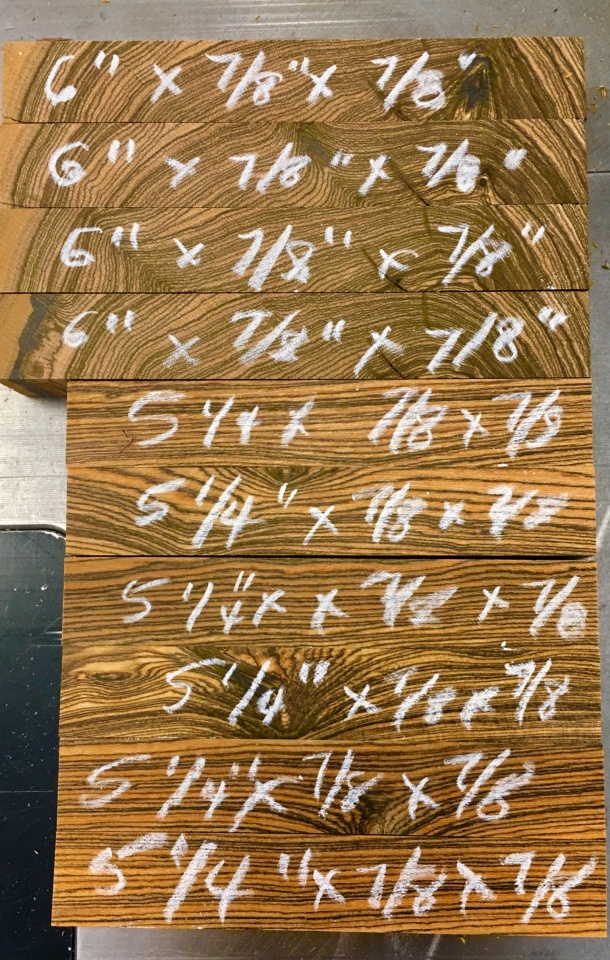 6" x 7/8" x 7/8"
6" x 7/8" x 7/8"
6" x 7/8" x 7/8"
6" x 7/8" x 7/8"
5 1/4 x 7/8 x 7/8
5 1/4" x 7/8 x 7/8
5 1/4" x x 7/8 x 7/8
5 1/4" x 7/8 x 7/8
5 1/4" x 7/8 x 7/8
5 1/4" x 7/8 x 7/8